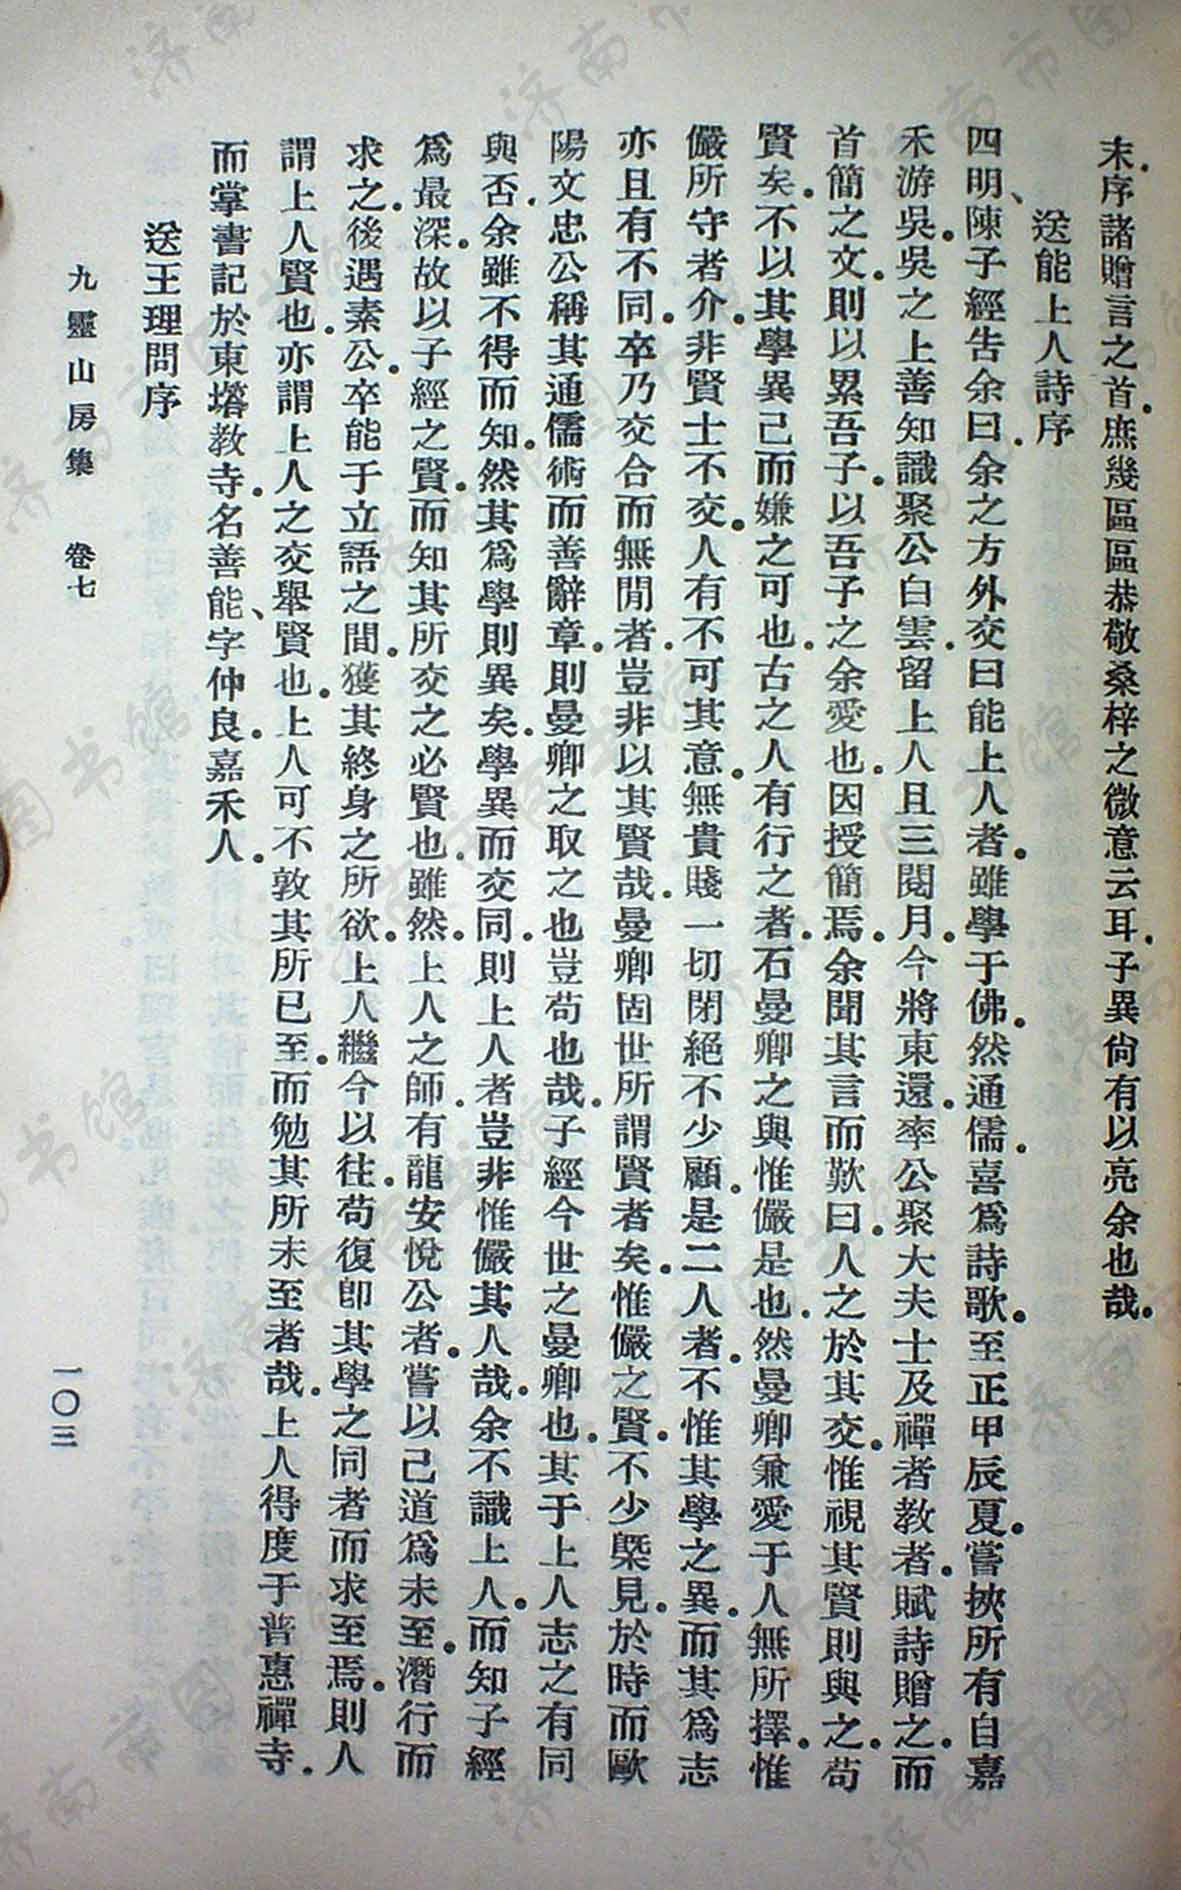 末.序諸贈言之首.庶幾區區恭敬桑梓之微意云耳.子異尙有以亮余也哉.
送能上人詩序
四明、陳子經告余曰.余之方外交曰能上人者.雖學于佛.然通儒.喜爲詩歌.至正甲辰夏.嘗挾所有自嘉
禾游吳.吳之上善知識聚公白雲.留上人且三閱月.今將東還.率公聚大夫士及禪者教者.賦詩贈之.而
首簡之文.則以累吾子.以吾子之余愛也.因授簡焉.余聞其言而歎曰.人之於其交.惟視其賢則與之.苟
賢矣.不以其學異己而嫌之可也.古之人有行之者.石曼卿之與惟儼是也.然曼卿兼愛于人無所擇.惟
儼所守者介.非賢士不交.人有不可其意.無貴賤一切閉絕不少顧.是二人者.不惟其學之異.而其爲志
亦且有不同.卒乃交合而無閒者.豈非以其賢哉.曼卿固世所謂賢者矣.惟儼之賢.不少槩見.於時而歐
陽文忠公稱其通儒術而善辭章.則曼卿之取之也豈苟也哉.子經今世之曼卿也.其于上人志之有同
與否.余雖不得而知.然其爲學則異矣.學異而交同.則上人者豈非惟儼其人哉.余不識上人.而知子經
爲最深.故以子經之賢.而知其所交之必賢也.雖然.上人之師.有龍安悅公者.嘗以己道爲未至.潛行而
求之.後遇素公.卒能于立語之間.獲其終身之所欲.上人繼今以往.苟復卽其學之同者而求至焉.則人
謂上人賢也.亦謂上人之交舉賢也.上人可不敦其所已至.而勉其所未至者哉.上人得度于普惠禪寺.
而掌書記於東塔教寺.名善能、字仲良.嘉禾人.
送王理問序
九靈山房集 卷七
一〇三